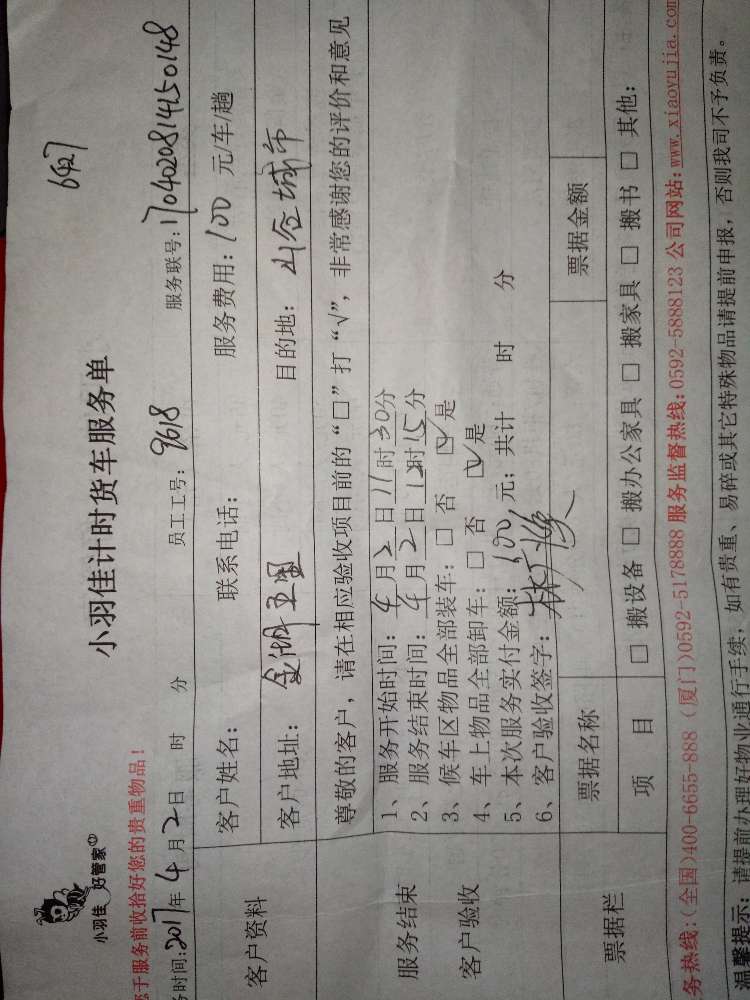 6427
小羽佳 好管家
小羽佳计时货车服务单
您于服务前收拾好您的贵重物品！
务时间:2017年4月2日 时 分 员工工号: 9618 服务联号: 1704020814150148
客户资料
客户姓名: 联系电话: 服务费用: 100 元/车/趟
客户地址: 金湖五里 目的地: 山谷城市
服务结束
客户验收
尊敬的客户，请在相应验收项目前的“□”打“√”，非常感谢您的评价和意见
1、服务开始时间: 4月2日11时30分
2、服务结束时间: 4月2日12时15分
3、候车区物品全部装车: □ 否 ☑ 是
4、车上物品全部卸车: □ 否 ☑ 是
5、本次服务实付金额: 100 元; 共计 时 分
6、客户验收签字:
票据栏
票据名称 票据金额
项 目 □ 搬设备 □ 搬办公家具 □ 搬家具 □ 搬书 □ 其他:
务热线:(全国)400-6655-888 (厦门)0592-5178888 服务监督热线:0592-5888123 公司网站:www.xiaoyujia.com
温馨提示: 请提前办理好物业通行手续，如有贵重、易碎或其它特殊物品请提前申报，否则我司不予负责。